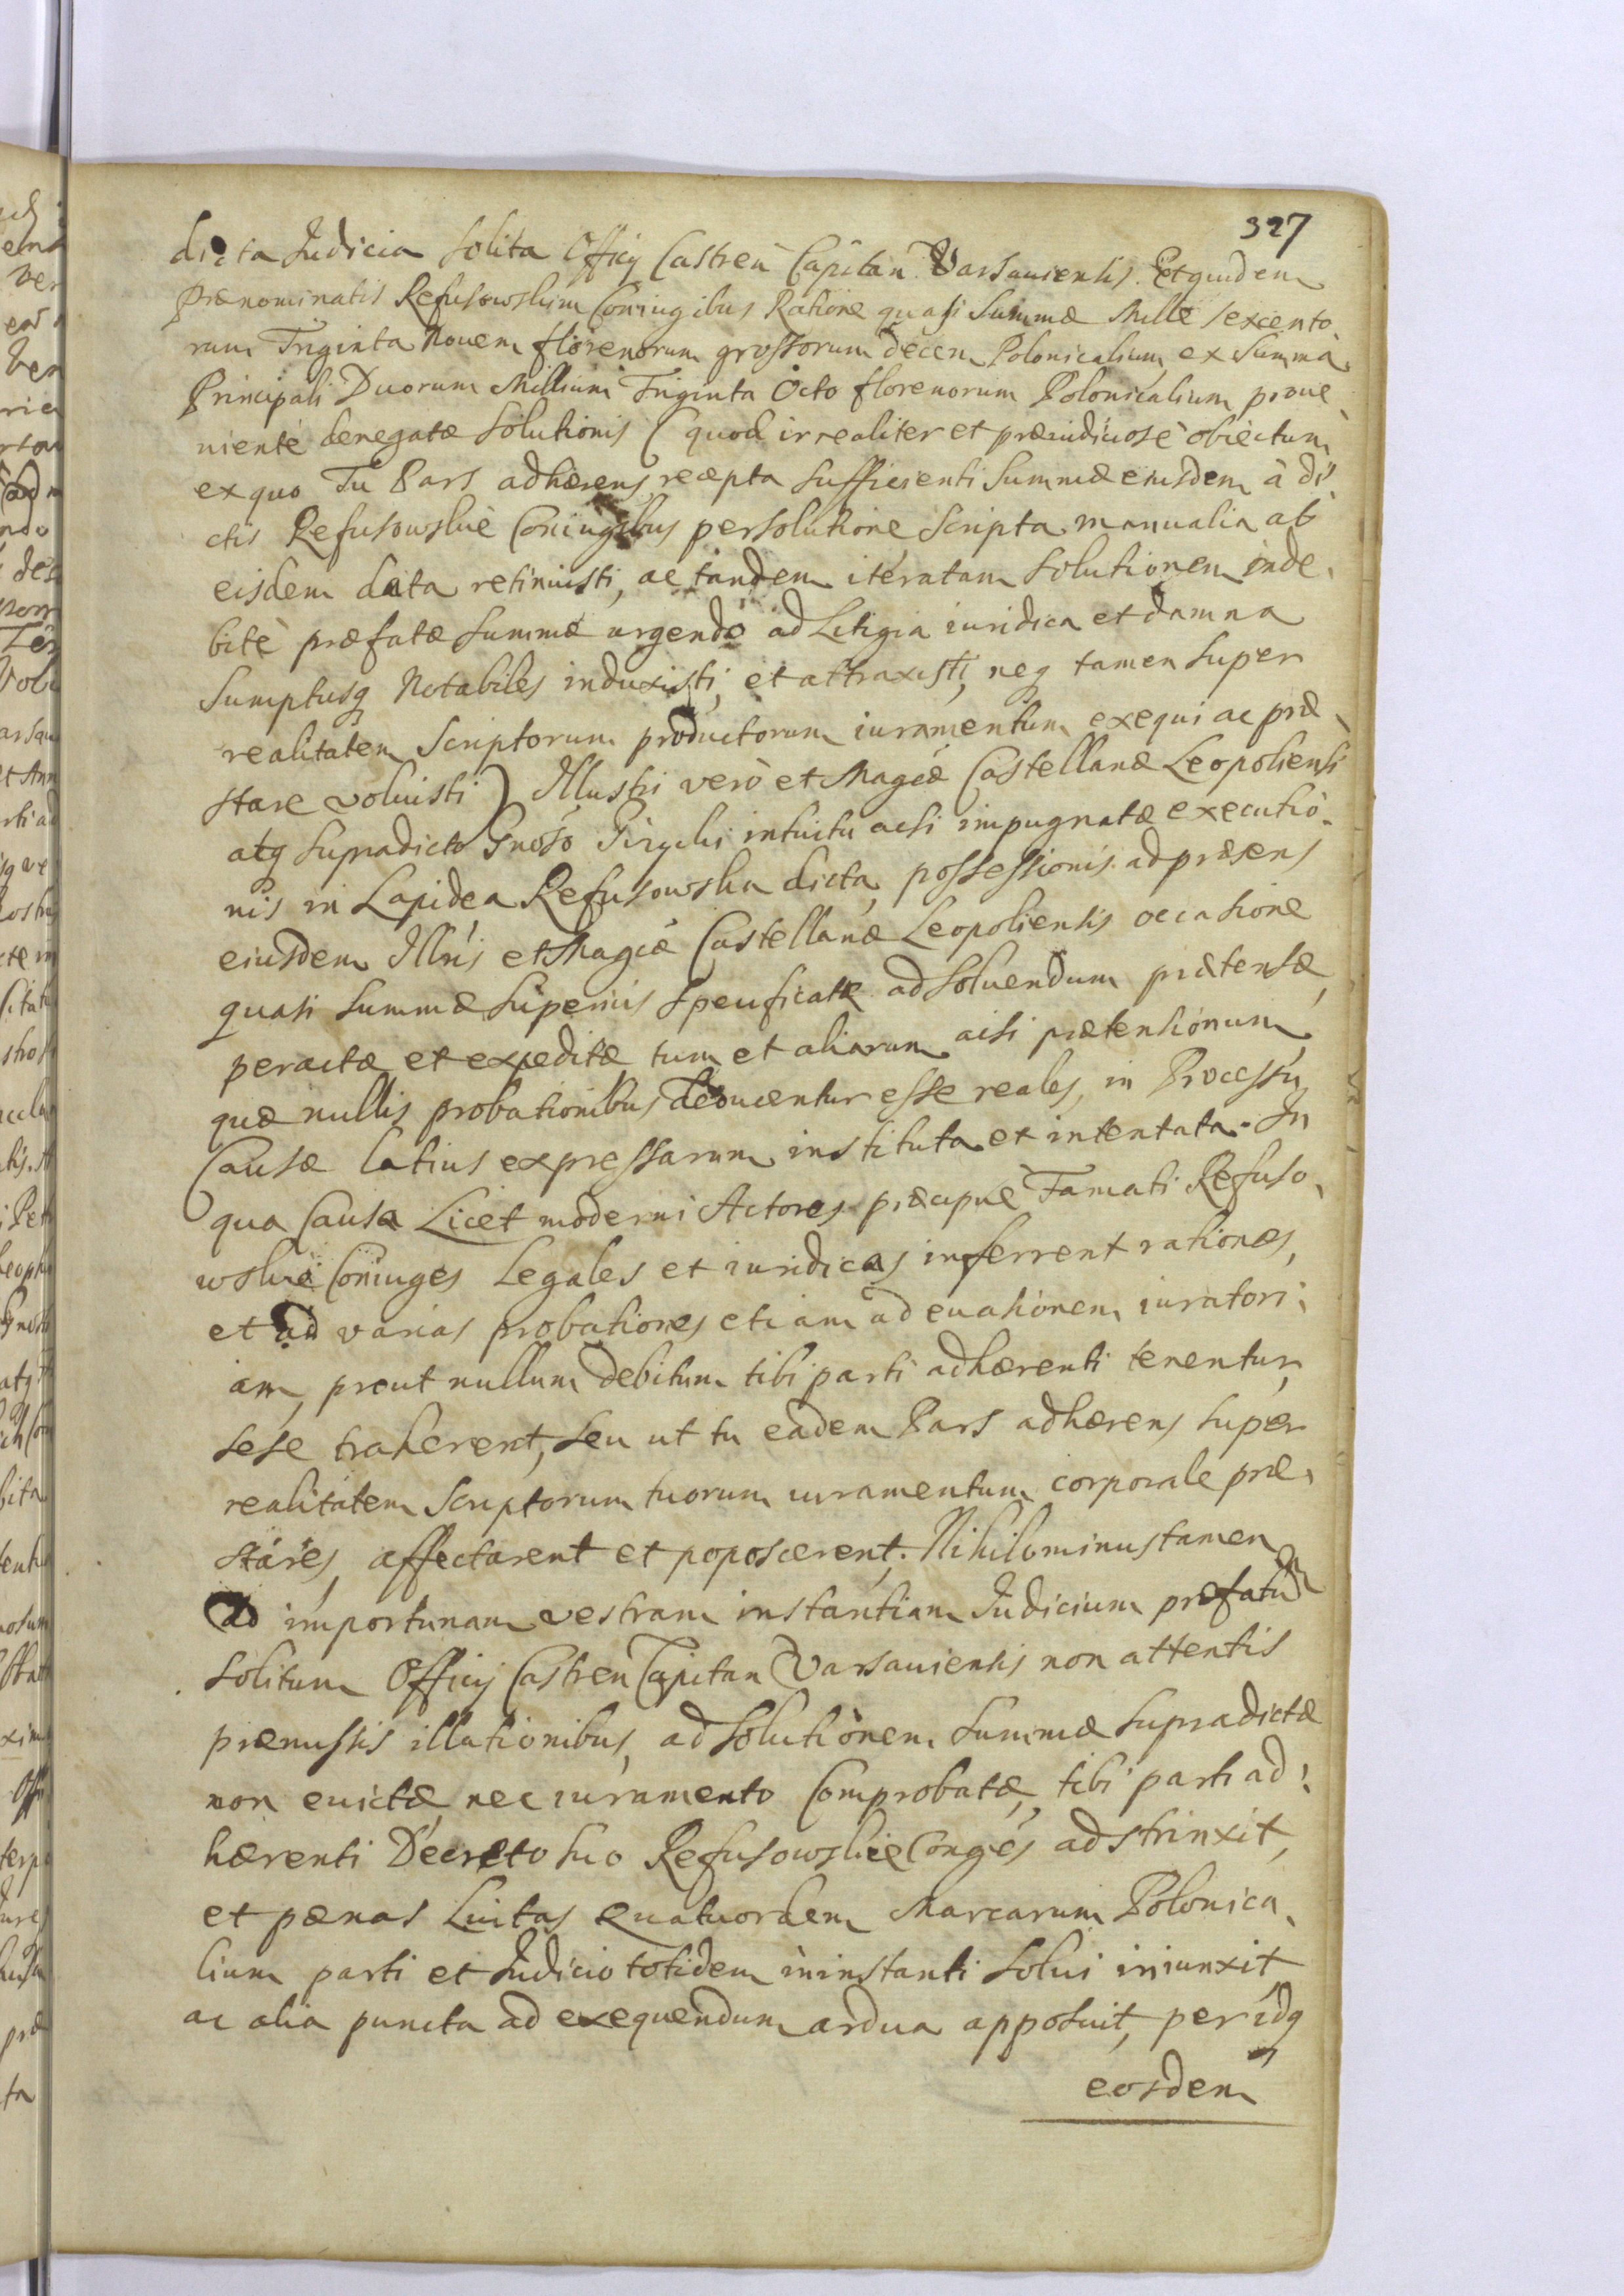 327
dicta Judicia solita Officij Castren Capitan Varsauiensis. Et quidem
prænominatis Refusowskim Coniugibus Ratione quasi Summæ Mille sexcento,
rum Triginta Nouem florenorum grossorum decem Polonicalium, ex Summa
Principali Duorum Millium Triginta Octo florenorum Polonicalium proue,
niente denegatæ Solutionis (quod irrealiter et præiudiciose obiectum
ex quo Tu Pars adhærens recepta sufficienti Summæ eiusdem à di,
ctis Refusowskie Coniugibus persolutione Scripta manualia ab
eisdem data retinuisti, ac tandem iteratam Solutionem inde,
bitè præfatæ Summæ urgendo ad Litigia iuridica et damna
Sumptusq Notabiles induxisti, et attraxisti, neq tamen super
realitatem Scriptorum productorum iuramentum exequi ac præ,
stare voluisti) Illustri verò et Magcæ Castellanæ Leopoliensi
atq supradicto Gnoso intuitu acsi impugnatæ executio,
nis in Lapidea Refusowska dicta, possessionis ad præsens
eiusdem Illris et Magcæ Castellanæ Leopoliensis occasione
quasi Summæ superius Specificatæ ad soluendum prætensæ,
peractæ et expeditæ tum et aliarum acsi prætensionum,
quæ nullis probationibus docuentur esse reales, in Processu
Causæ latius expressarum instituta et intentata. In
qua Causa Licet moderni Actores præcipuè Famati Refuso,
wskie Coniuges Legales et iuridicas inferrent rationes,
et ad varias probationes etiam ad euasionem iuratori,
am, prout nullum debitum tibi parti adhærenti tenentur,
sese traherent, seu ut tu eadem Pars adhærens super
realitatem Scriptorum tuorum iuramentum corporale præ,
stares, affectarent et poposcerent. Nihilominus tamen
ad importunam vestram instantiam Judicium præfatum
solitum Officij Castren Capitan Varsauiensis non attentis
præmissis illationibus, ad Solutionem Summæ supradictæ
non euictæ nec iuramento Comprobatæ, tibi parti ad,
hærenti Decreto suo Refusowskie Conges adstrinxit,
et pænas Luitas quatuordem Marcarum Polonica,
lium parti et Judicio totidem in instanti solui iniunxit
ac alia puncta ad exequendum ardua apposuit, per idq
eosdem